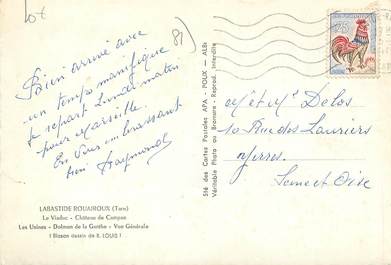 Lot
81
Bien arrivé avec
un temps magnifique
Je repart Lundi matin
pour Marseille.
En vous embrassant
Raymond
LABASTIDE ROUAIROUX (Tarn)
Le Viaduc - Château de Campan
Les Usines - Dolmen de la Gorthe - Vue Générale
(Blason dessin de R. LOUIS)
Sté des Cartes Postales APA - POUX - ALBI
Véritable Photo au Bromure - Reprod. Interdite
0,25
M et Mme Delos
10 Rue des Lauriers
Yerres.
Seine et Oise